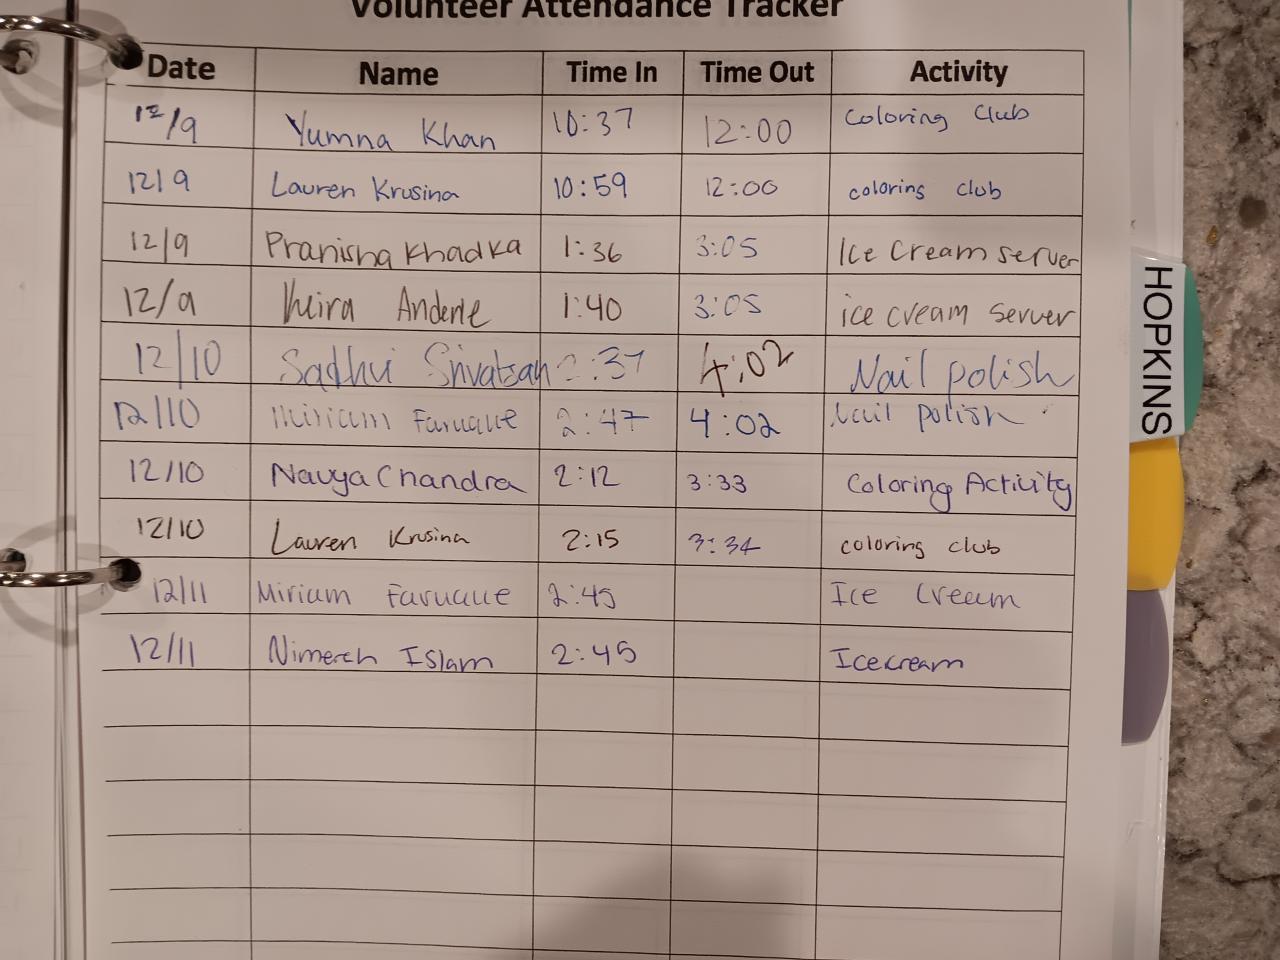 Volunteer Attendance Tracker
Date Name Time In Time Out Activity
12/9 Yumna Khan 10:37 12:00 Coloring Club
12/9 Lauren Krusina 10:59 12:00 coloring club
12/9 Pranisha Khadka 1:36 3:05 Ice Cream server
12/9 Keira Anderle 1:40 3:05 ice cream server
12/10 Sadhvi Srivatsan 2:37 4:02 Nail polish
12/10 Miriam Faruque 2:47 4:02 Nail polish
12/10 Navya Chandra 2:12 3:33 Coloring Activity
12/10 Lauren Krusina 2:15 3:34 coloring club
12/11 Miriam Faruque 2:45 Ice Cream
12/11 Nimerah Islam 2:45 Icecream
HOPKINS